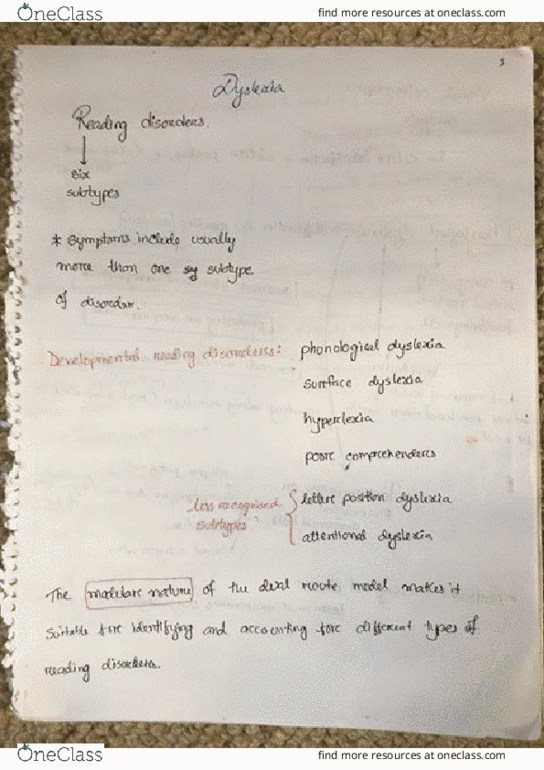 OneClass
find more resources at oneclass.com
Dyslexia
Reading disorders.
six
subtypes
* symptoms include usually
more than one sy subtype
of disorder.
Developmental reading disorders: phonological dyslexia
surface dyslexia
hyperlexia
poor comprehenders
less recognised
subtypes
letter position dyslexia
attentional dyslexia
The modular nature of the dual route model makes it
suitable for identifying and accounting for different types of
reading disorders.
OneClass
find more resources at oneclass.com